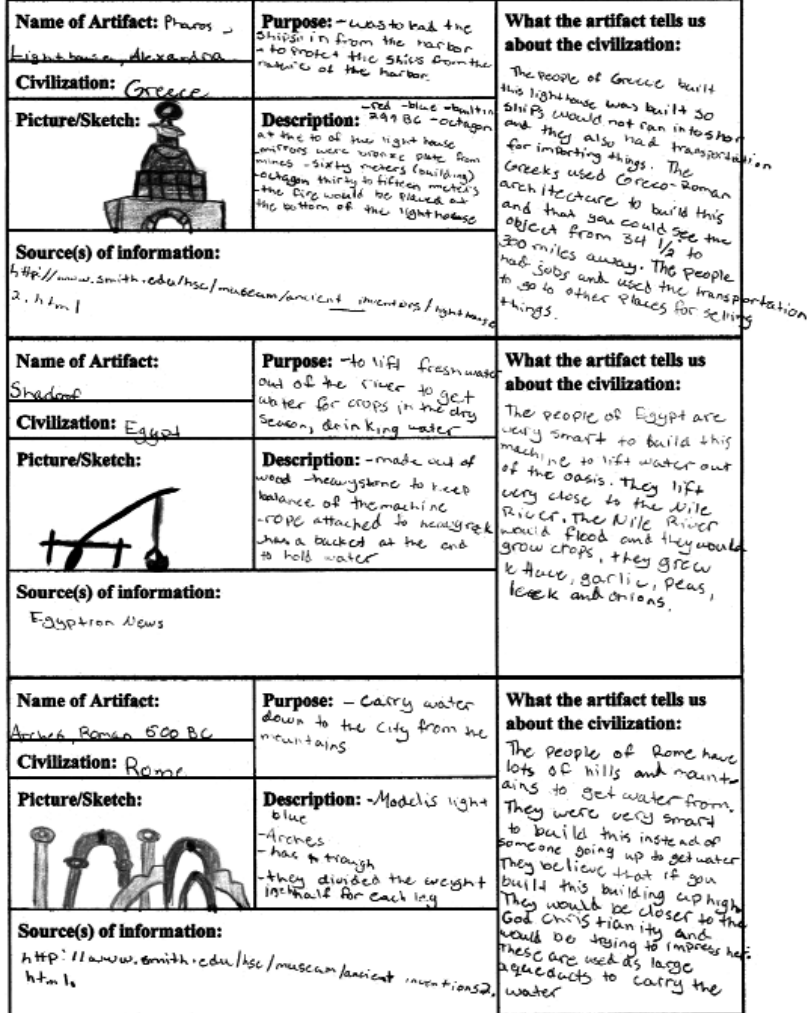 Name of Artifact: Pharos,
Lighthouse, Alexandra
Civilization: Greece
Purpose: - was to lead the
ships in from the harbor
- to protect the ships from the
nature of the harbor.
Picture/Sketch:
Description: -red -blue -built in
299 BC -octagon
at the to of the light house
-mirrors were bronze plate from
mines -sixty meters (building)
-octagon thirty to fifteen meters
-the fire would be placed at
the bottom of the lighthouse
Source(s) of information:
http://www.smith.edu/hsc/museum/ancient_inventors/lighthouse
2.html
What the artifact tells us
about the civilization:
The people of Greece built
this lighthouse was built so
ships would not ran into shor
and they also had transportation
for importing things. The
Greeks used Greco-Roman
architecture to build this
and that you could see the
object from 34 1/2 to
300 miles away. The people
had jobs and used the transportation
to go to other places for selling
things.
Name of Artifact:
Shadoof
Civilization: Egypt
Purpose: -to lift fresh water
out of the river to get
water for crops in the dry
season, drinking water
Picture/Sketch:
Description: -made out of
wood -heavy stone to keep
balance of the machine
-rope attached to heavy rock
-has a backet at the end
to hold water
Source(s) of information:
Egyptron News
What the artifact tells us
about the civilization:
The people of Egypt are
very smart to build this
machine to lift water out
of the oasis. They lift
very close to the Nile
River. The Nile River
would flood and they would
grow crops, they grew
garlic, peas,
leek and onions.
Name of Artifact:
Arches, Roman 600 BC
Civilization: Rome
Purpose: - Carry water
down to the City from the
mountains
Picture/Sketch:
Description: -Model is light
blue
-Arches
-has a trough
-they divided the weight
in half for each leg
Source(s) of information:
http://www.smith.edu/hsc/museum/ancient inventions2.
html.
What the artifact tells us
about the civilization:
The people of Rome have
lots of hills and mount-
ains to get water from.
They were very smart
to build this instead of
someone going up to get water
They believe that if you
build this building up high
They would be closer to the
God Christianity and
would be trying to impress her.
These are used as large
aqueducts to carry the
water